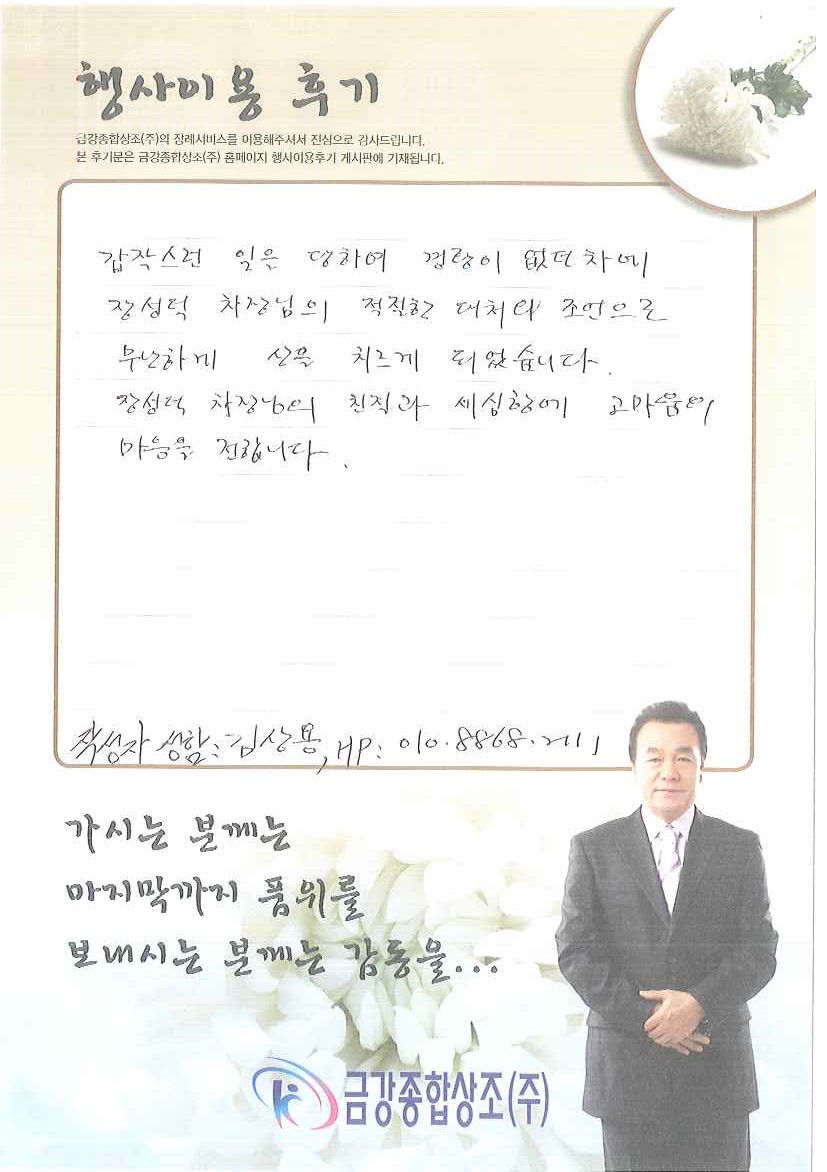 행사이용 후기
금강종합상조(주)의 장례서비스를 이용해주셔서 진심으로 감사드립니다.
본 후기문은 금강종합상조(주) 홈페이지 행사이용후기 게시판에 기재됩니다.
갑작스런 일은 당하여 경황이 없던차에
장성덕 차장님의 적절한 대처와 조언으로
무난하게 상을 치르게 되었습니다.
장성덕 차장님의 친절과 세심함에 고마움의
마음을 전합니다.
작성자 성함: 김상용, HP: 010.8868.2111
가시는 분께는
마지막까지 품위를
보내시는 분께는 감동을...
금강종합상조(주)